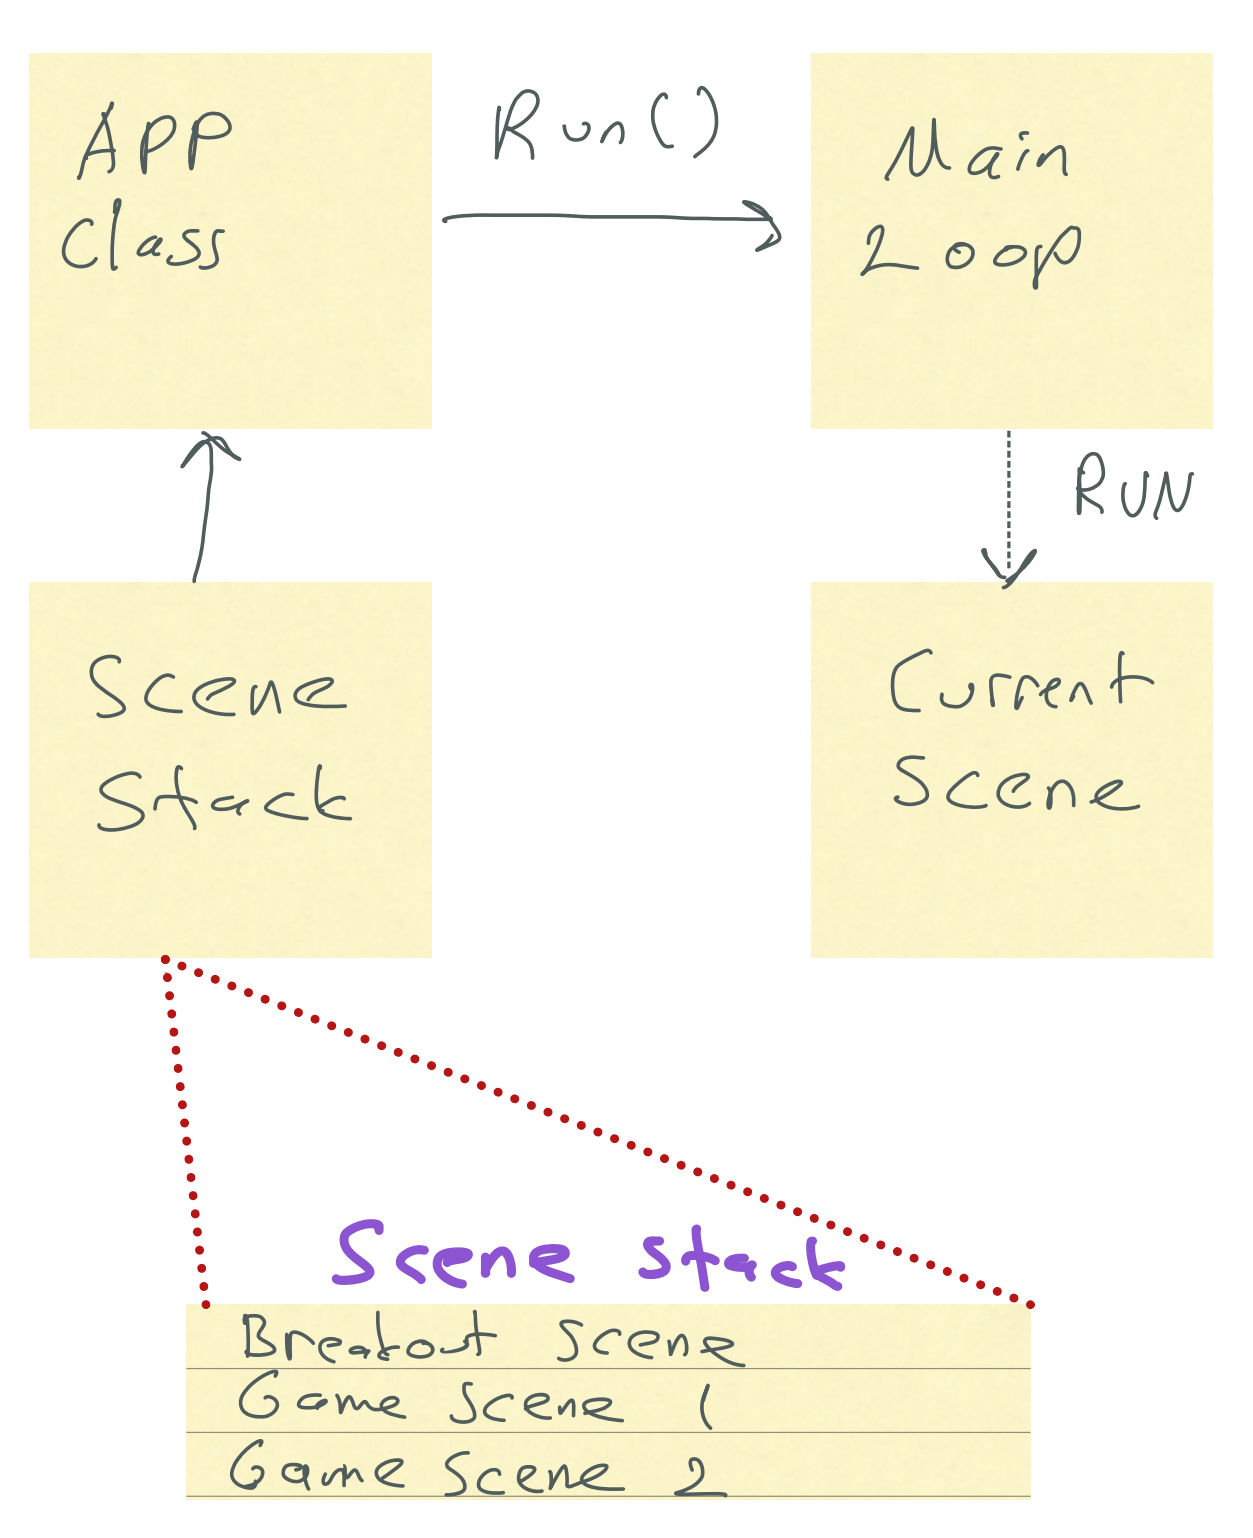 APP
Class
Run()
Main
Loop
RUN
Scene
Stack
Current
Scene
Scene Stack
Breakout Scene
Game Scene 1
Game Scene 2